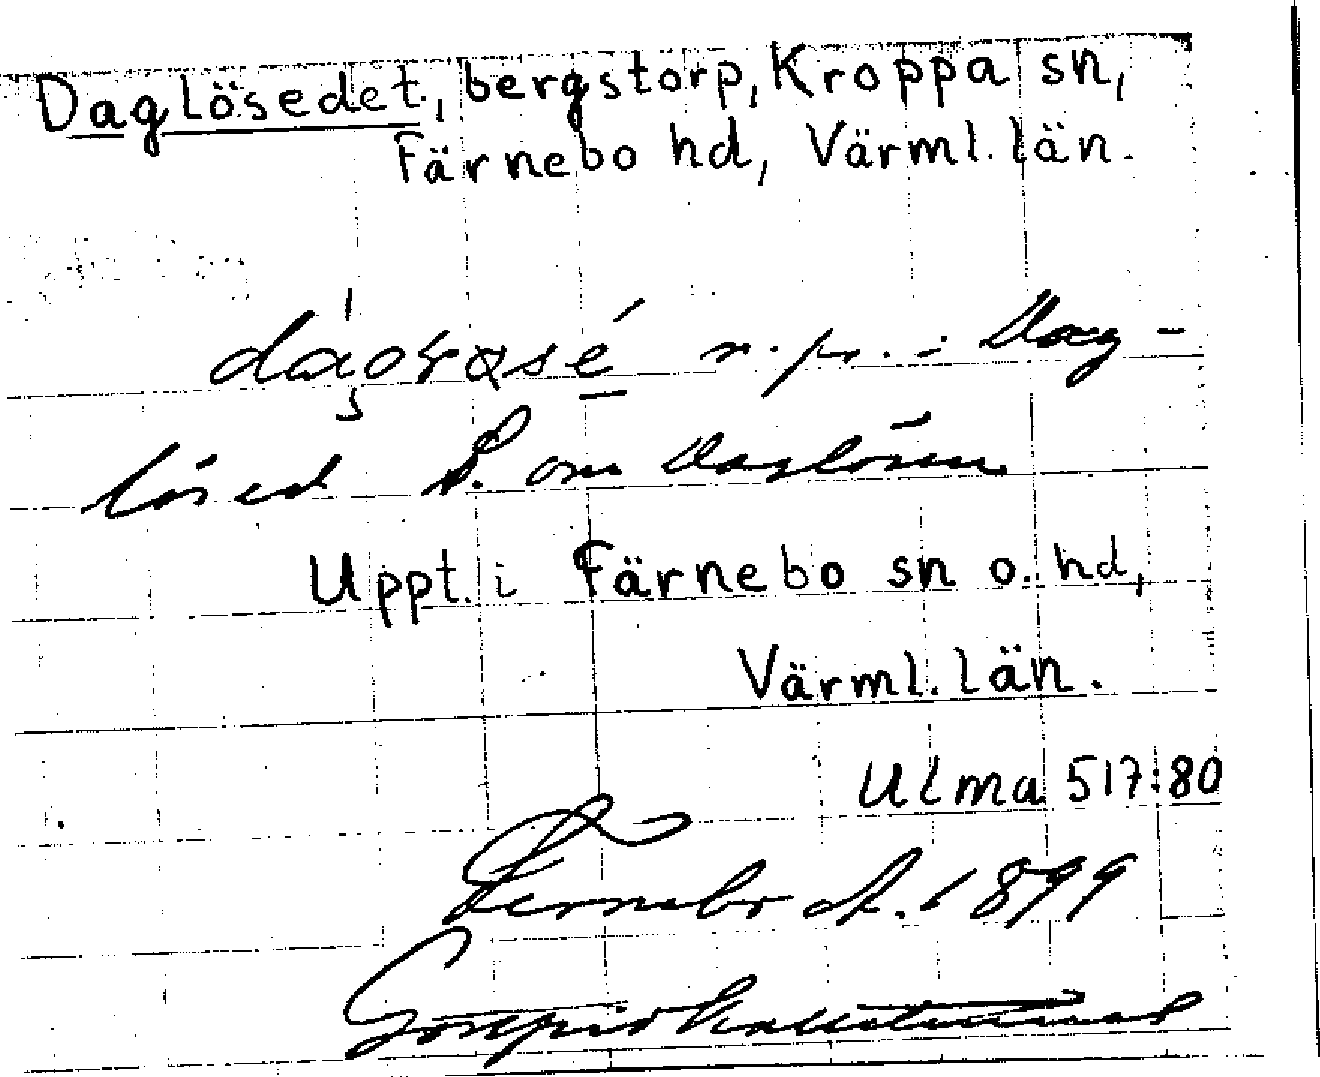 Daglösedet, bergstorp, Kroppa sn,
Färnebo hd, Värml. län.
n. pr. : Dag-
lösed S. om Daglösen
Uppt. i Färnebo sn o. hd,
Värml. län.
Ulma 517:80
Fernebo 1899
Gottfrid Kallstenius